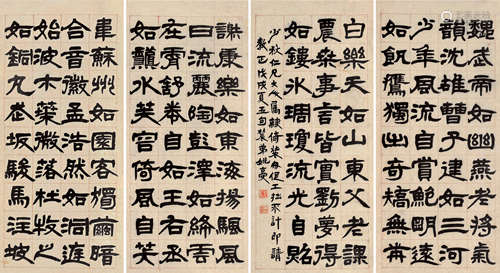 魏武帝如幽燕老將氣
韻沈雄曹子建如三河
少年風流自賞鮑明遠
如飢鷹獨出奇矯無前
白樂天如山東父老課
農桑事言言皆實劉夢得
如鏤冰雕瓊流光自照
少秋仁兄大人屬隸倚裝作但工拙不計即請
教正戊戌夏五
謝康樂如東海揚颿風
日流麗陶彭澤如絳雲
在霄舒卷自如王右丞
如秋水芙蕖倚風自笑
韋蘇州如園客獨繭暗
合音徽孟浩然如洞庭
始波木葉微落杜牧之
如銅丸走坂駿馬注坡